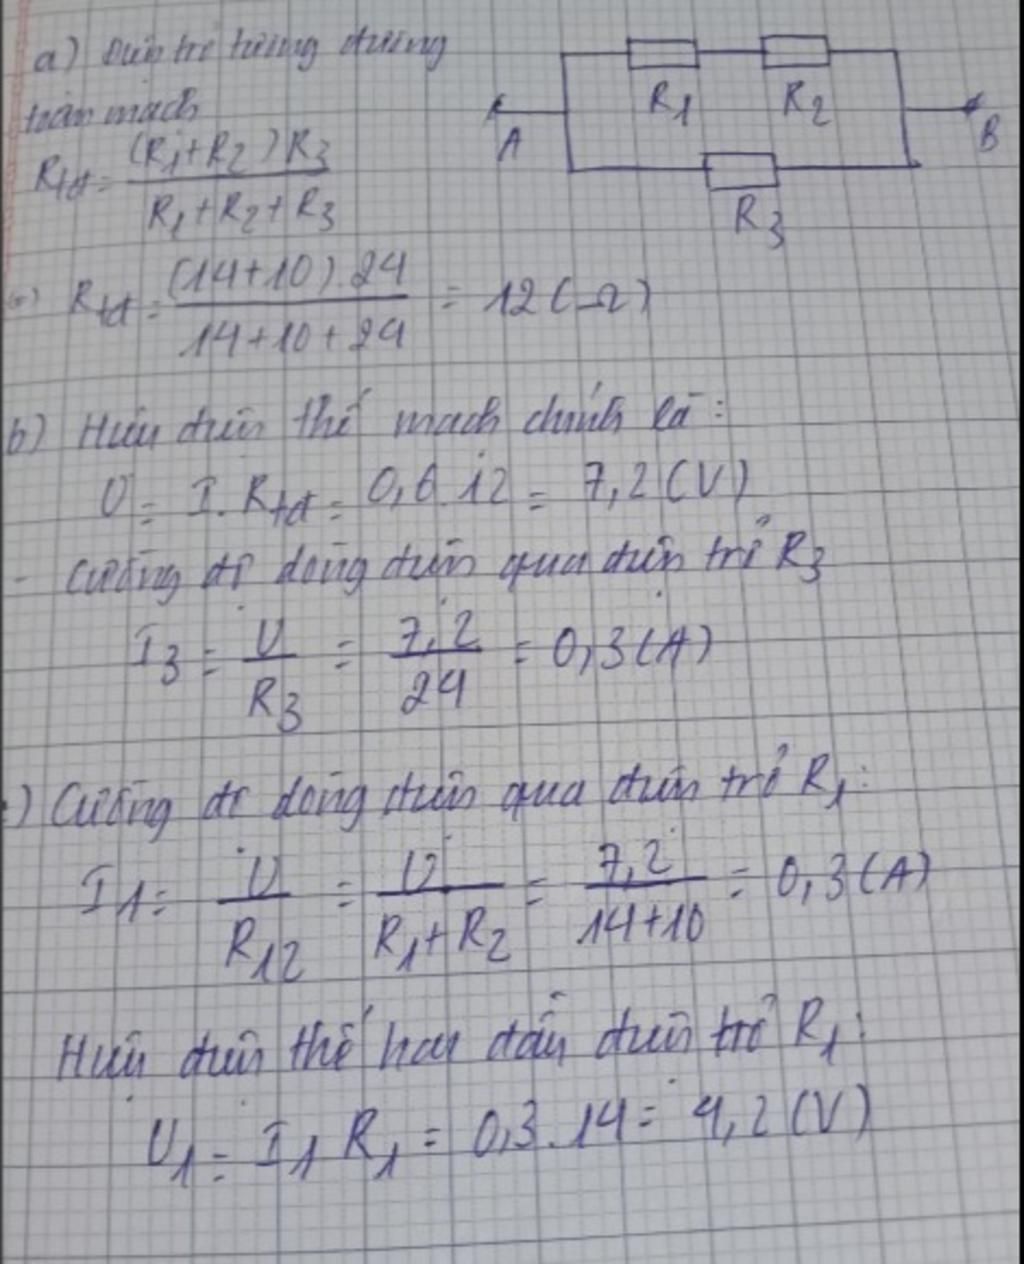 a) Điện trở tương đương
toàn mạch
Rtđ = (R1+R2)R3 / R1+R2+R3
R1 R2
A B
R3
Rtđ = (14+10).24 / 14+10+24 = 12(Ω)
b) Hiệu điện thế mạch chính là:
U = I.Rtđ = 0,6.12 = 7,2(V)
- Cường độ dòng điện qua điện trở R3
I3 = U / R3 = 7,2 / 24 = 0,3(A)
) Cường độ dòng điện qua điện trở R1:
I1 = U / R12 = U / R1+R2 = 7,2 / 14+10 = 0,3(A)
Hiệu điện thế hai đầu điện trở R1:
U1 = I1 R1 = 0,3.14 = 4,2(V)